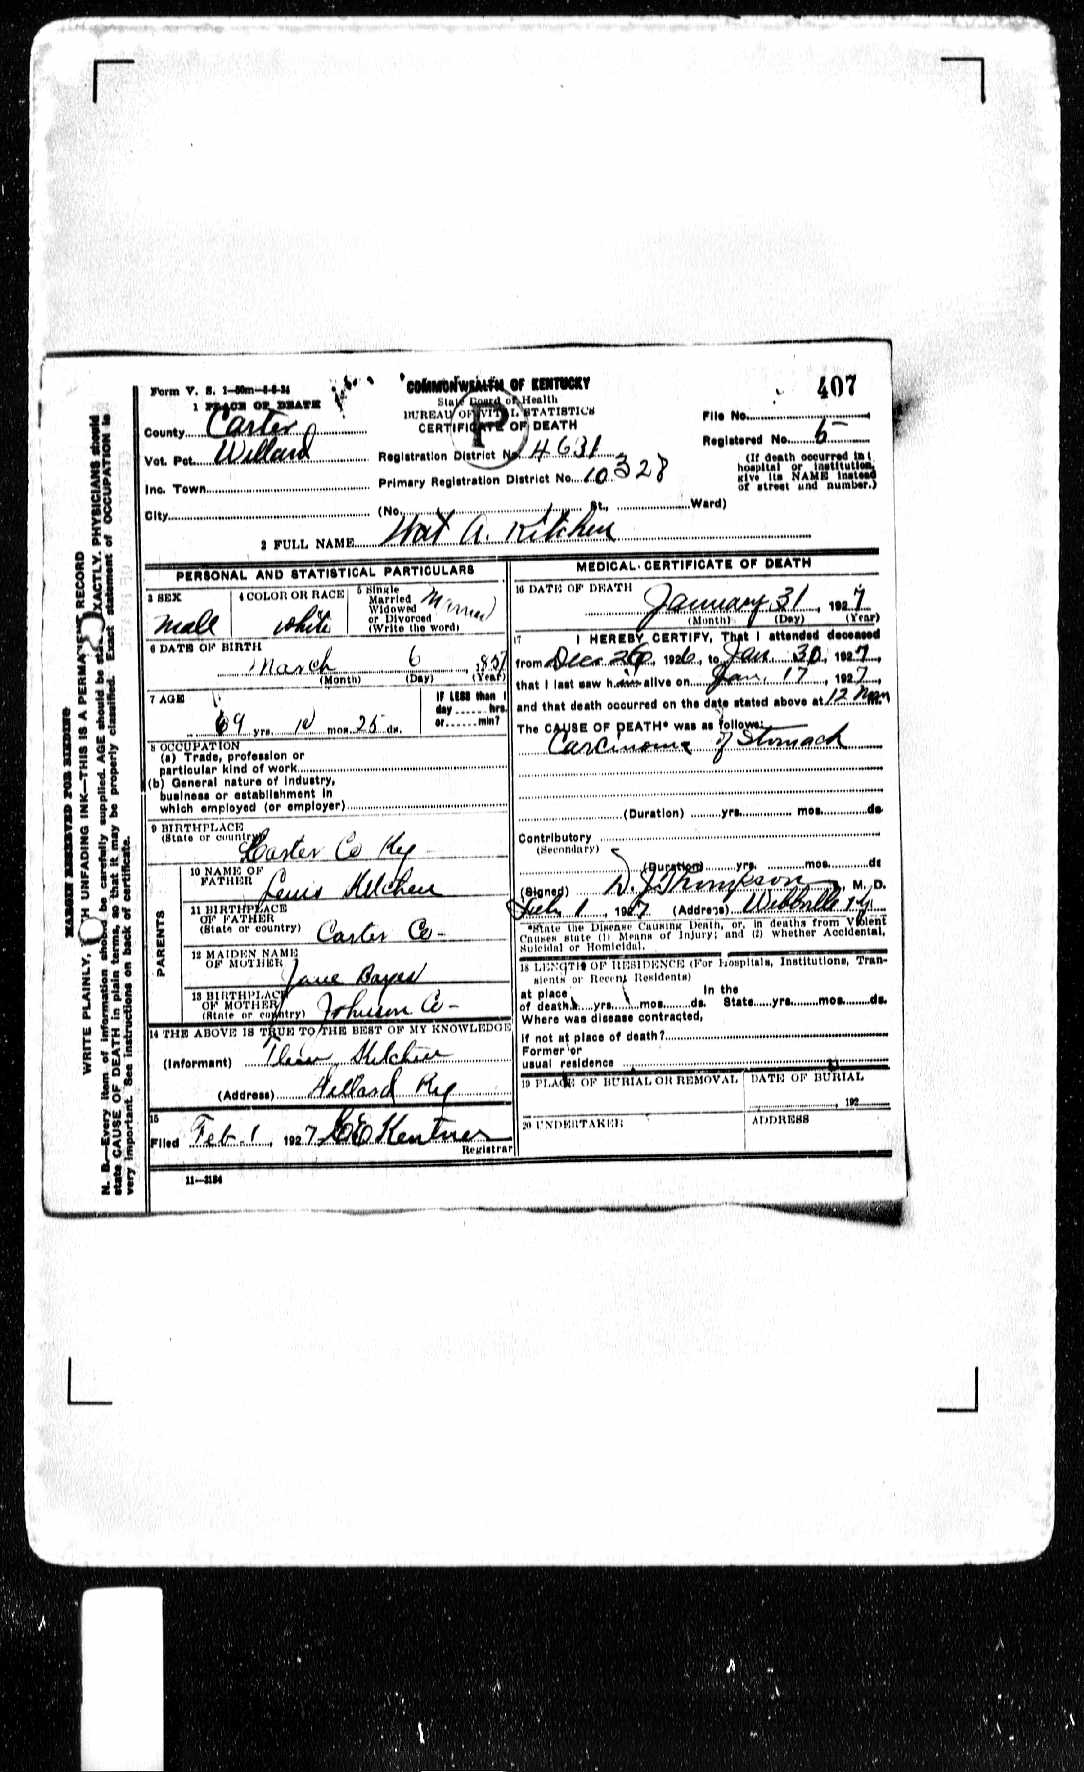 407
Form V. S. 1—50m—6-9-24
COMMONWEALTH OF KENTUCKY
State Board of Health
BUREAU OF VITAL STATISTICS
CERTIFICATE OF DEATH
1 PLACE OF DEATH
County Carter
Vot. Pct. Willard
Inc. Town
City
File No.
Registered No. 5
Registration District No. 4631
Primary Registration District No. 10328
(If death occurred in a
hospital or institution,
give its NAME instead
of street and number.)
(No. St., Ward)
2 FULL NAME Wat A. Kitchen
PERSONAL AND STATISTICAL PARTICULARS
3 SEX
Male
4 COLOR OR RACE
White
5 Single
Married
Widowed
or Divorced
(Write the word)
Married
6 DATE OF BIRTH
March 6, 1857
(Month) (Day) (Year)
7 AGE
69 yrs. 10 mos. 25 ds.
IF LESS than 1
day hrs.
or min?
8 OCCUPATION
(a) Trade, profession or
particular kind of work
(b) General nature of industry,
business or establishment in
which employed (or employer)
9 BIRTHPLACE
(State or country)
Carter Co Ky
PARENTS
10 NAME OF
FATHER Lewis Kitchen
11 BIRTHPLACE
OF FATHER
(State or country) Carter Co-
12 MAIDEN NAME
OF MOTHER Jane
13 BIRTHPLACE
OF MOTHER
(State or country) Johnson Co-
14 THE ABOVE IS TRUE TO THE BEST OF MY KNOWLEDGE
(Informant) Kitchen
(Address) Willard Ky
15
Filed Feb. 1, 1927 Kentner
Registrar
11—3184
MEDICAL CERTIFICATE OF DEATH
16 DATE OF DEATH
January 31, 1927
(Month) (Day) (Year)
17
I HEREBY CERTIFY, That I attended deceased
from Dec 26, 1926, to Jan 30, 1927,
that I last saw him alive on Jan. 17, 1927,
and that death occurred on the date stated above at 12 M.
The CAUSE OF DEATH* was as follows:
Carcinoma of Stomach
(Duration) yrs. mos. ds.
Contributory
(Secondary)
(Duration) yrs. mos. ds
(Signed) D. J. Thompson, M. D.
Feb 1, 1927 (Address) Webbville Ky
*State the Disease Causing Death, or, in deaths from Violent
Causes state (1) Means of Injury; and (2) whether Accidental,
Suicidal or Homicidal.
18 LENGTH OF RESIDENCE (For Hospitals, Institutions, Tran-
sients or Recent Residents)
at place In the
of death yrs. mos. ds. State yrs. mos. ds.
Where was disease contracted,
if not at place of death?
Former or
usual residence
19 PLACE OF BURIAL OR REMOVAL
DATE OF BURIAL
, 192
20 UNDERTAKER
ADDRESS
MARGIN RESERVED FOR BINDING
WRITE PLAINLY, WITH UNFADING INK—THIS IS A PERMANENT RECORD
N. B.—Every item of information should be carefully supplied. AGE should be stated EXACTLY. PHYSICIANS should
state CAUSE OF DEATH in plain terms, so that it may be properly classified. Exact statement of OCCUPATION is
very important. See instructions on back of certificate.